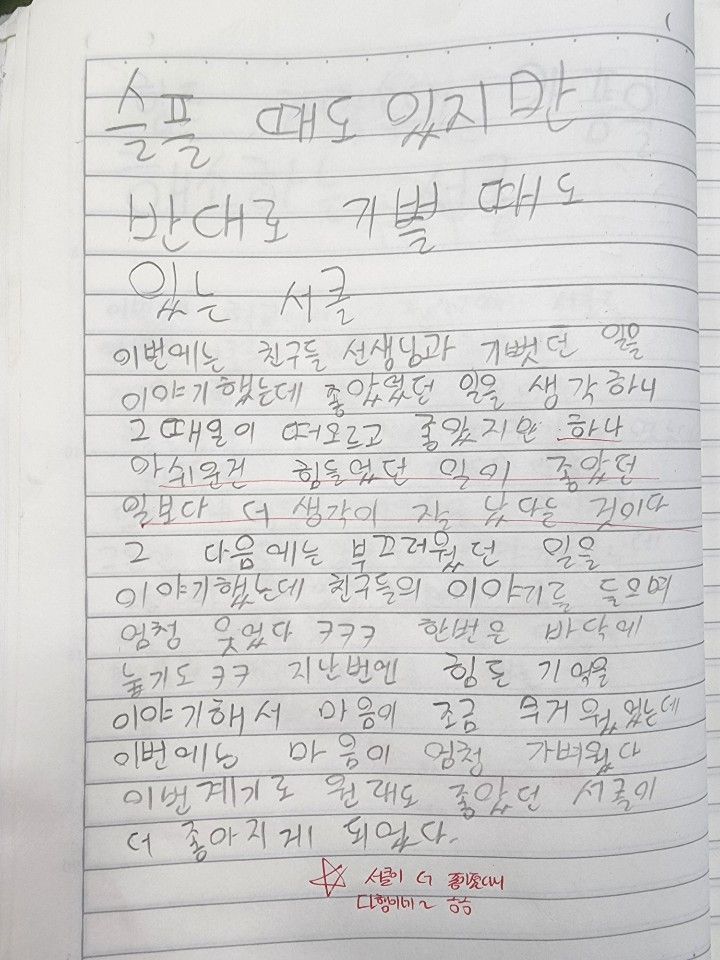 슬플 때도 있지만
반대로 기쁠 때도
있는 서클
이번에는 친구들 선생님과 기뻣던 일을
이야기했는데 좋았었던 일을 생각하니
그때일이 떠오르고 좋았지만 하나
아쉬운건 힘들었던 일이 좋았던
일보다 더 생각이 잘 났다는 것이다
그 다음에는 부끄러웠던 일을
이야기했는데 친구들의 이야기를 들으며
엄청 웃었다 ㅋㅋㅋ 한번은 바닥에
눕기도 ㅋㅋ 지난번엔 힘든 기억을
이야기해서 마음이 조금 무거웠었는데
이번에는 마음이 엄청 가벼웠다
이번계기로 원래도 좋았던 서클이
더 좋아지게 되었다.
서클이 더 좋아졌다니
다행이네~ 승승